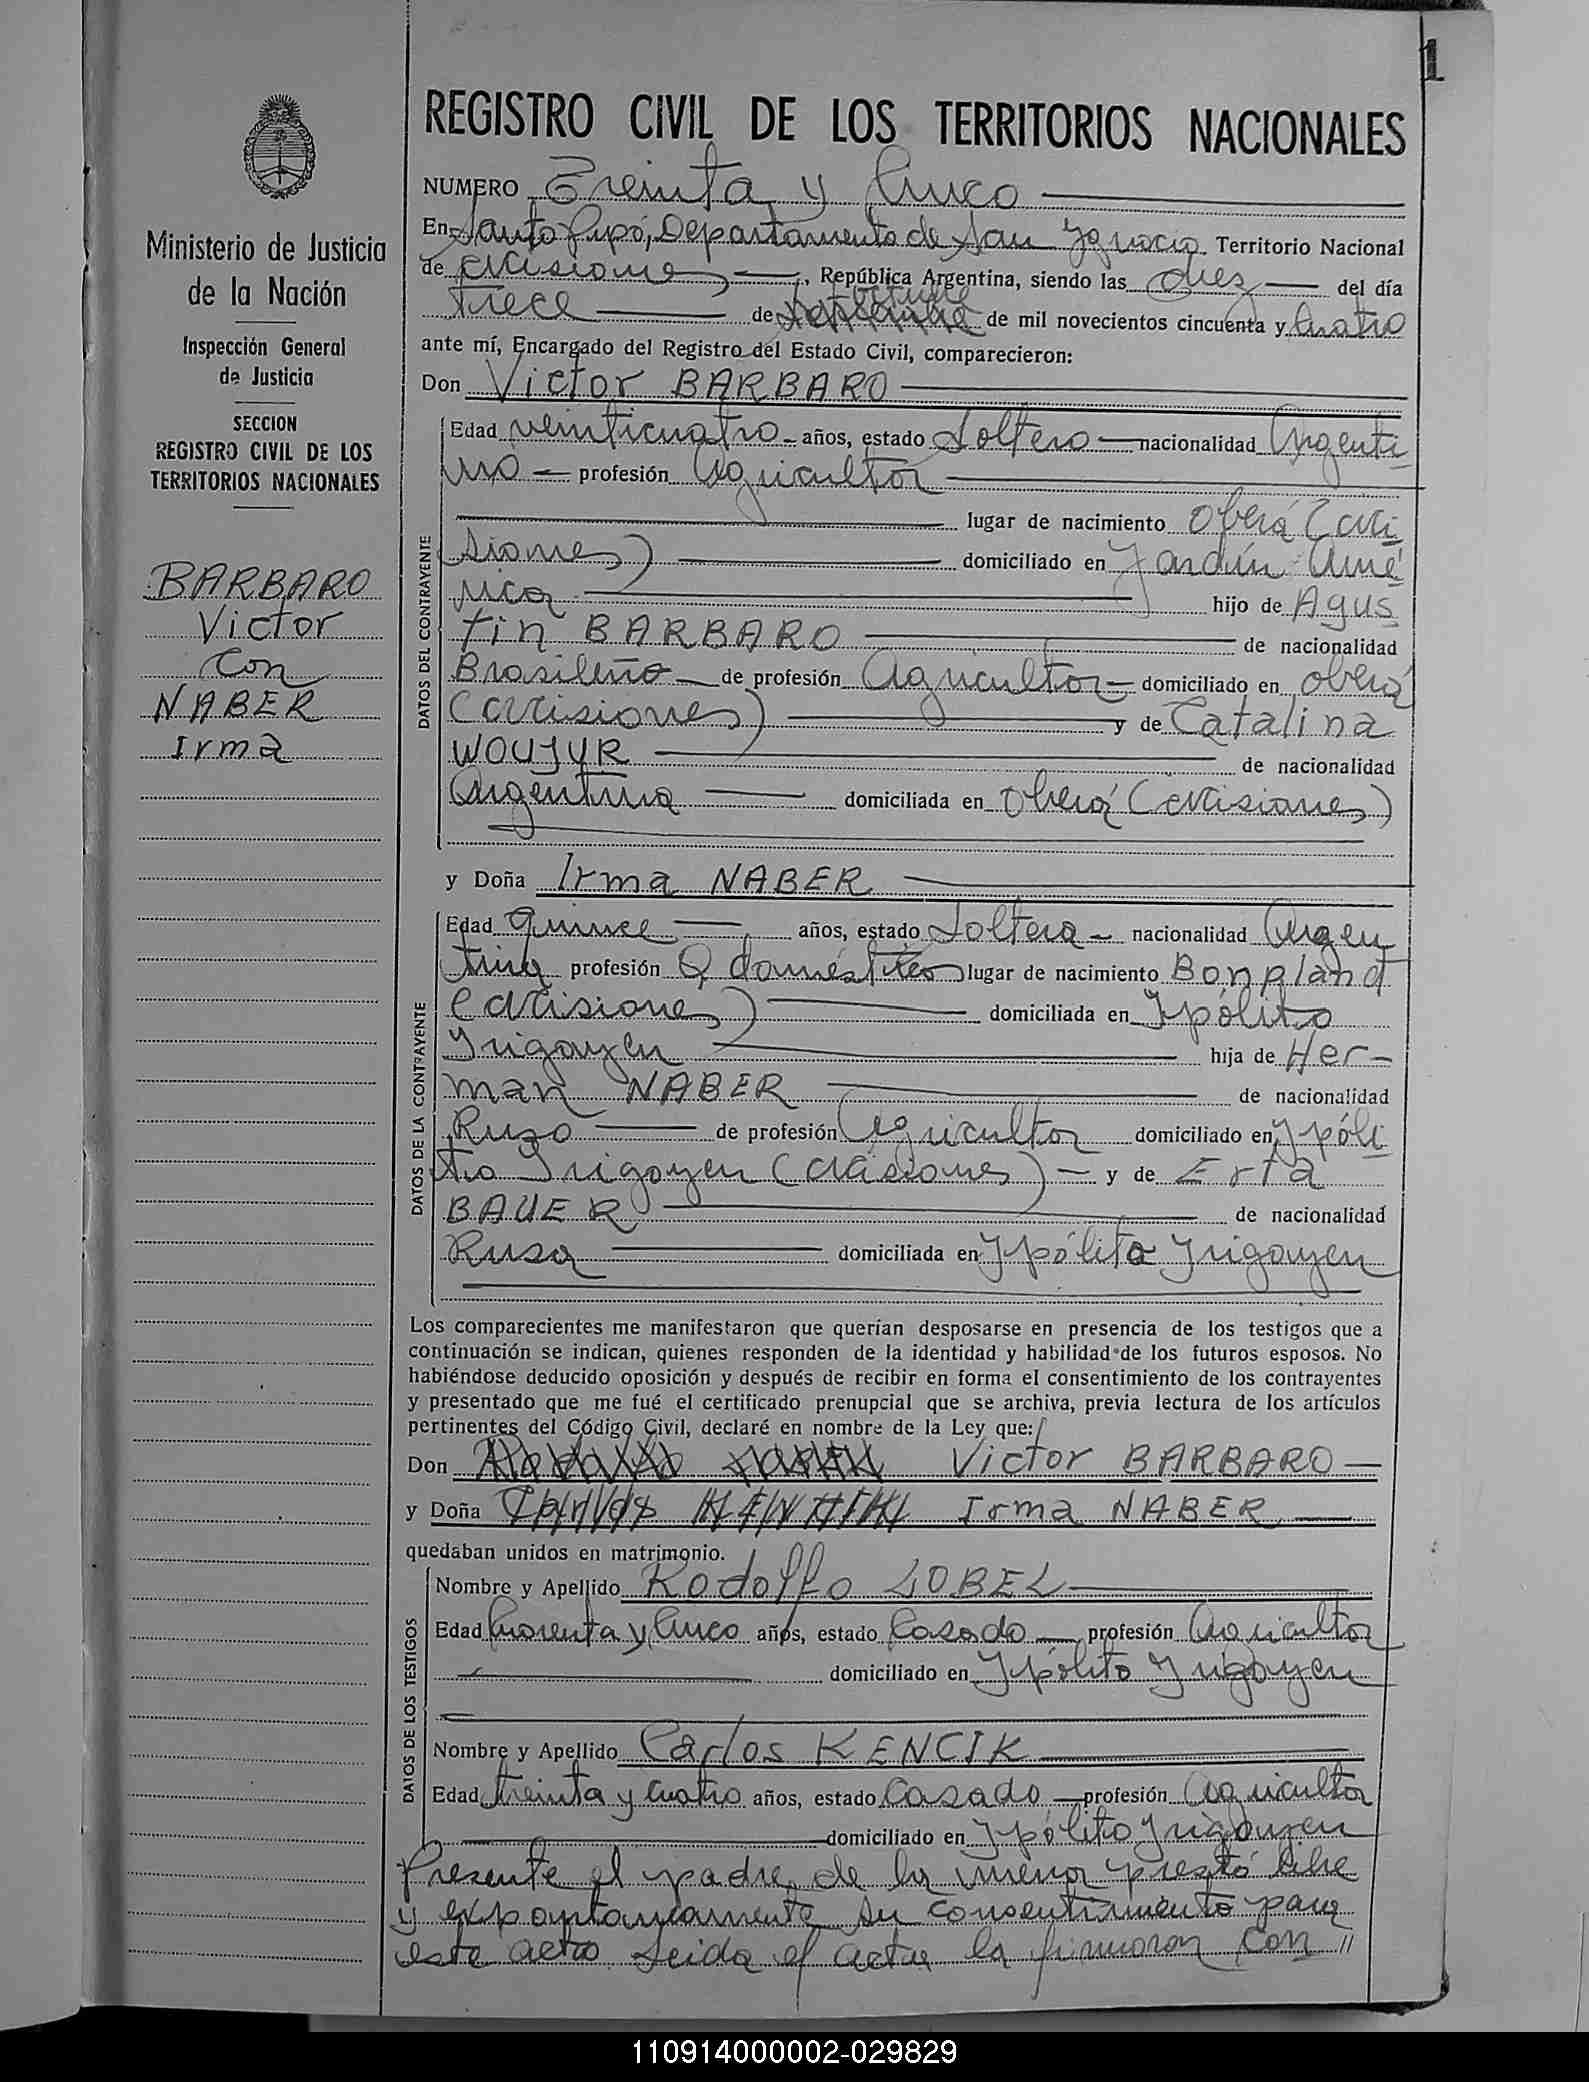 1
REGISTRO CIVIL DE LOS TERRITORIOS NACIONALES
Ministerio de Justicia
de la Nación
Inspección General
de Justicia
SECCION
REGISTRO CIVIL DE LOS
TERRITORIOS NACIONALES
BARBARO
Victor
Con
NABER
Irma
NUMERO Treinta y Cinco
En Santo Pipó, Departamento de San Ygnacio Territorio Nacional
de Misiones, República Argentina, siendo las diez del día
trece de octubre de mil novecientos cincuenta y Cuatro
ante mí, Encargado del Registro del Estado Civil, comparecieron:
Don Victor BARBARO
DATOS DEL CONTRAYENTE
Edad veinticuatro años, estado Soltero nacionalidad Argenti
no profesión Agricultor
lugar de nacimiento Oberá (Mi
siones) domiciliado en Jardín Amé
rica hijo de Agus
tin BARBARO de nacionalidad
Brasileño de profesión Agricultor domiciliado en Oberá
(Misiones) y de Catalina
WOUJUR de nacionalidad
Argentina domiciliada en Oberá (Misiones)
y Doña Irma NABER
DATOS DE LA CONTRAYENTE
Edad Quince años, estado Soltera nacionalidad Argen
tina profesión Q. domésticos lugar de nacimiento Bonpland
(Misiones) domiciliada en Ypólito
Yrigoyen hija de Her-
man NABER de nacionalidad
Ruso de profesión Agricultor domiciliado en Ypóli
to Yrigoyen (Misiones) y de Erta
BAUER de nacionalidad
Rusa domiciliada en Ypólito Yrigoyen
Los comparecientes me manifestaron que querían desposarse en presencia de los testigos que a
continuación se indican, quienes responden de la identidad y habilidad de los futuros esposos. No
habiéndose deducido oposición y después de recibir en forma el consentimiento de los contrayentes
y presentado que me fué el certificado prenupcial que se archiva, previa lectura de los artículos
pertinentes del Código Civil, declaré en nombre de la Ley que:
Don Victor BARBARO
y Doña Irma NABER
quedaban unidos en matrimonio.
DATOS DE LOS TESTIGOS
Nombre y Apellido Rodolfo LOBEL
Edad Cuarenta y Cinco años, estado Casado profesión Agricultor
domiciliado en Ypólito Yrigoyen
Nombre y Apellido Carlos KENCIK
Edad treinta y Cuatro años, estado Casado profesión Agricultor
domiciliado en Ypólito Yrigoyen
Presente el padre de la menor prestó libre
y expontaneamente su consentimiento para
este acto Leida el acta la firmaron Con //
110914000002-029829